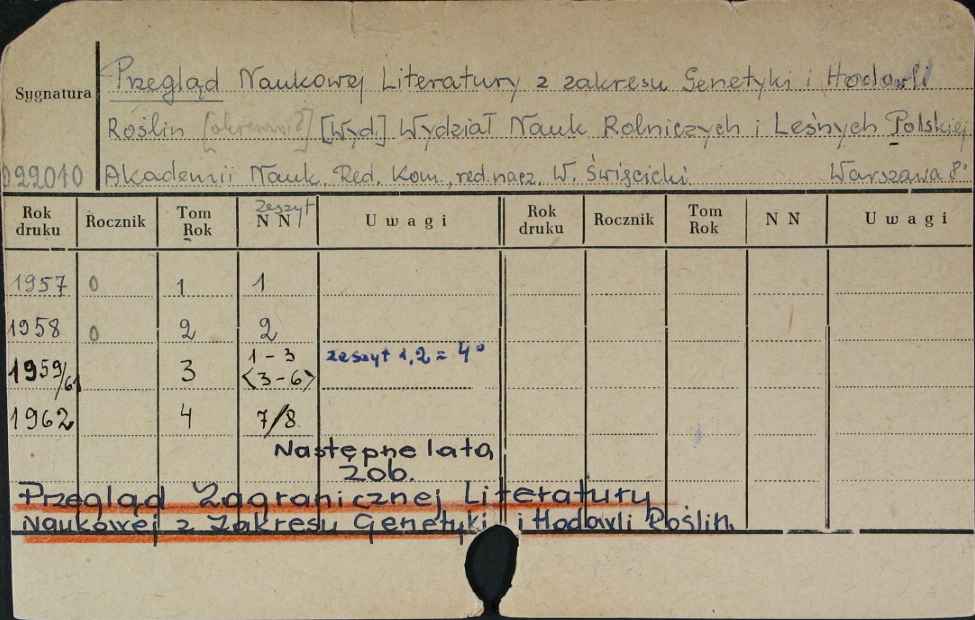 Przegląd Naukowej Literatury z zakresu Genetyki i Hodowli
Sygnatura
Roślin [Wyd.] Wydział Nauk Rolniczych i Leśnych Polskiej
022010 Akademii Nauk. Red. Kom., red. nacz. W. Święcicki. Warszawa 8°
Rok druku Rocznik Tom Rok Zeszyt N N Uwagi Rok druku Rocznik Tom Rok N N Uwagi
1957 0 1 1
1958 0 2 2
1959/61 3 1-3 <3-6> zeszyt 1,2 = 4°
1962 4 7/8
Następne lata
zob.
Przegląd Zagranicznej Literatury
Naukowej z Zakresu Genetyki i Hodowli Roślin.